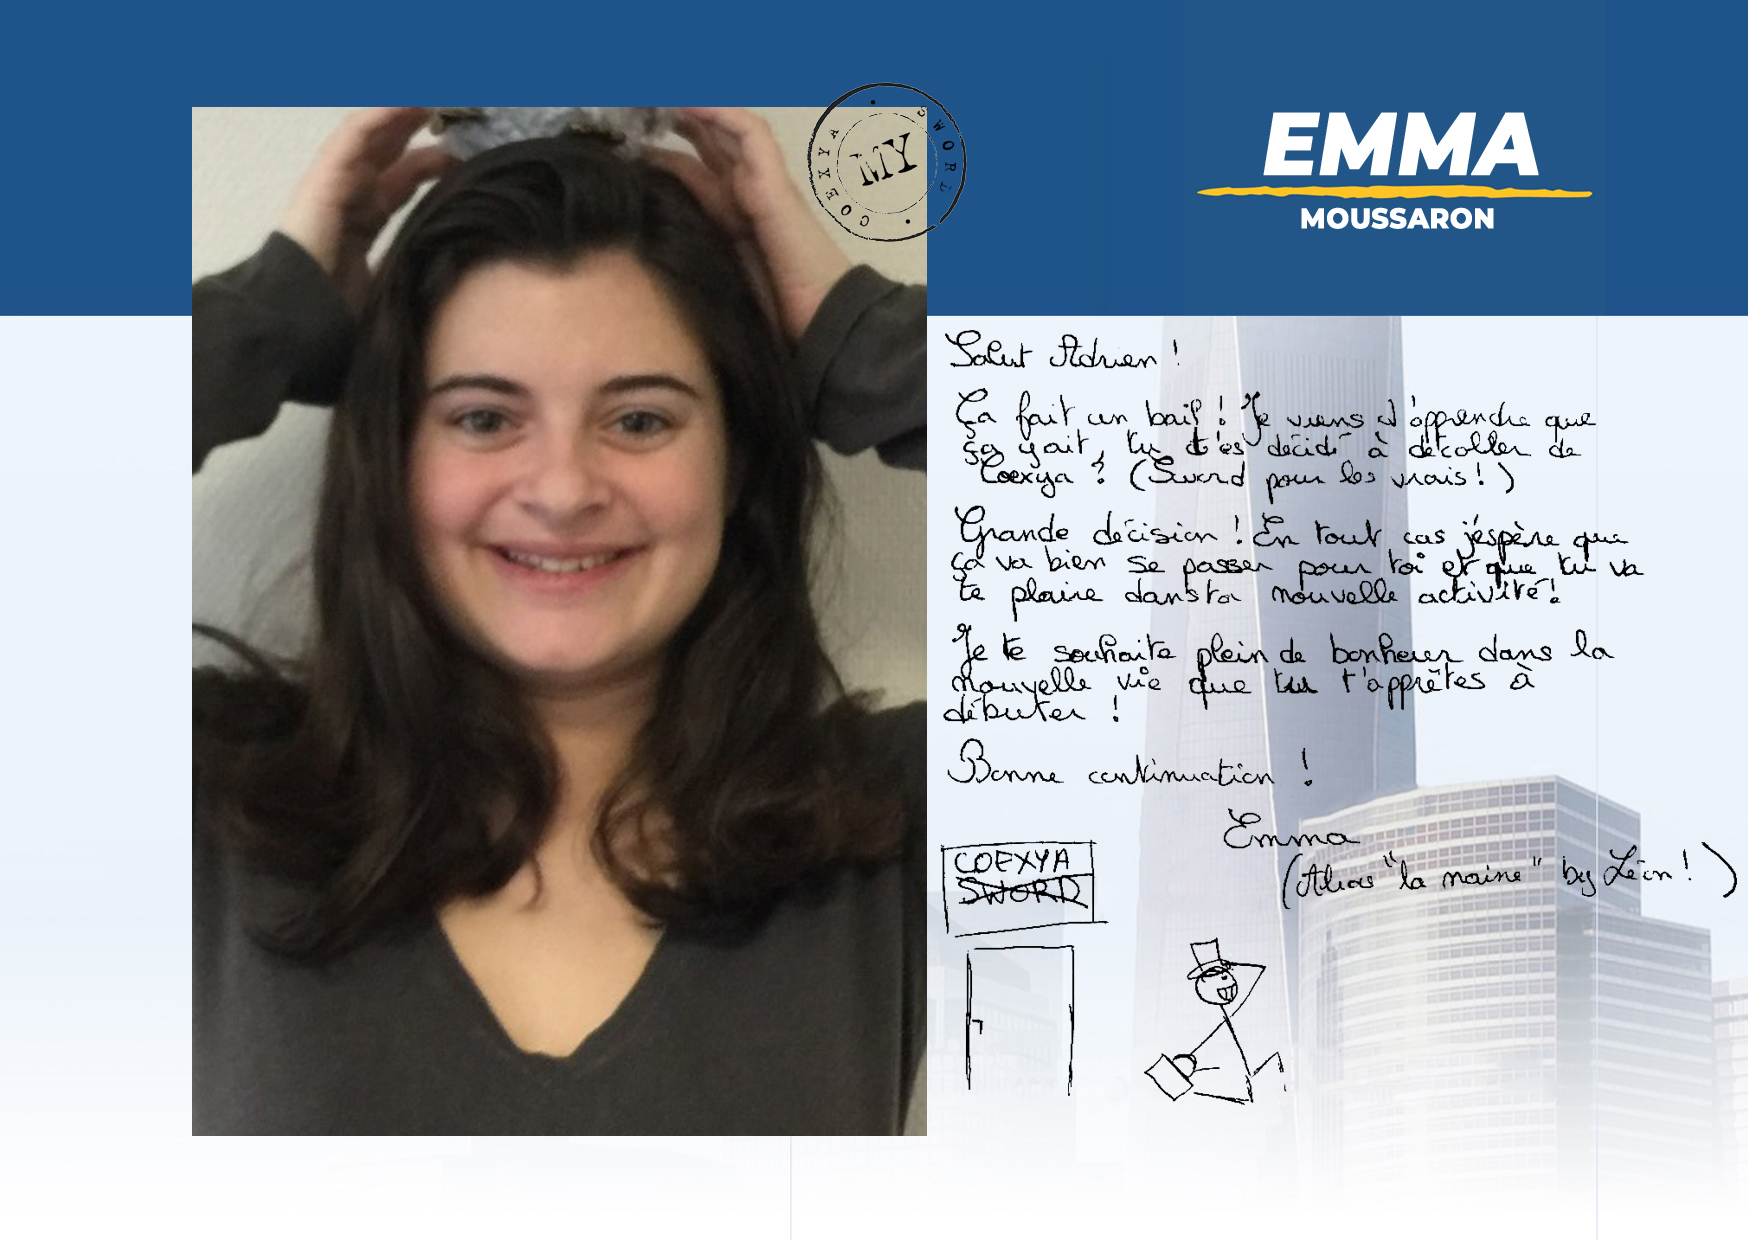 EMMA
MOUSSARON
COEXYA • SWORD •
MY
Salut Adrien !
Ça fait un bail ! Je viens d'apprendre que
ça yait, tu t'es décidé à décoller de
Coexya ? (Sword pour les vrais !)
Grande décision ! En tout cas j'espère que
ça va bien se passer pour toi et que tu va
te plaire dans ta nouvelle activité !
Je te souhaite plein de bonheur dans la
nouvelle vie que tu t'apprêtes à
débuter !
Bonne continuation !
Emma
(Alias "la naine" by Léon ! )
COEXYA
SWORD